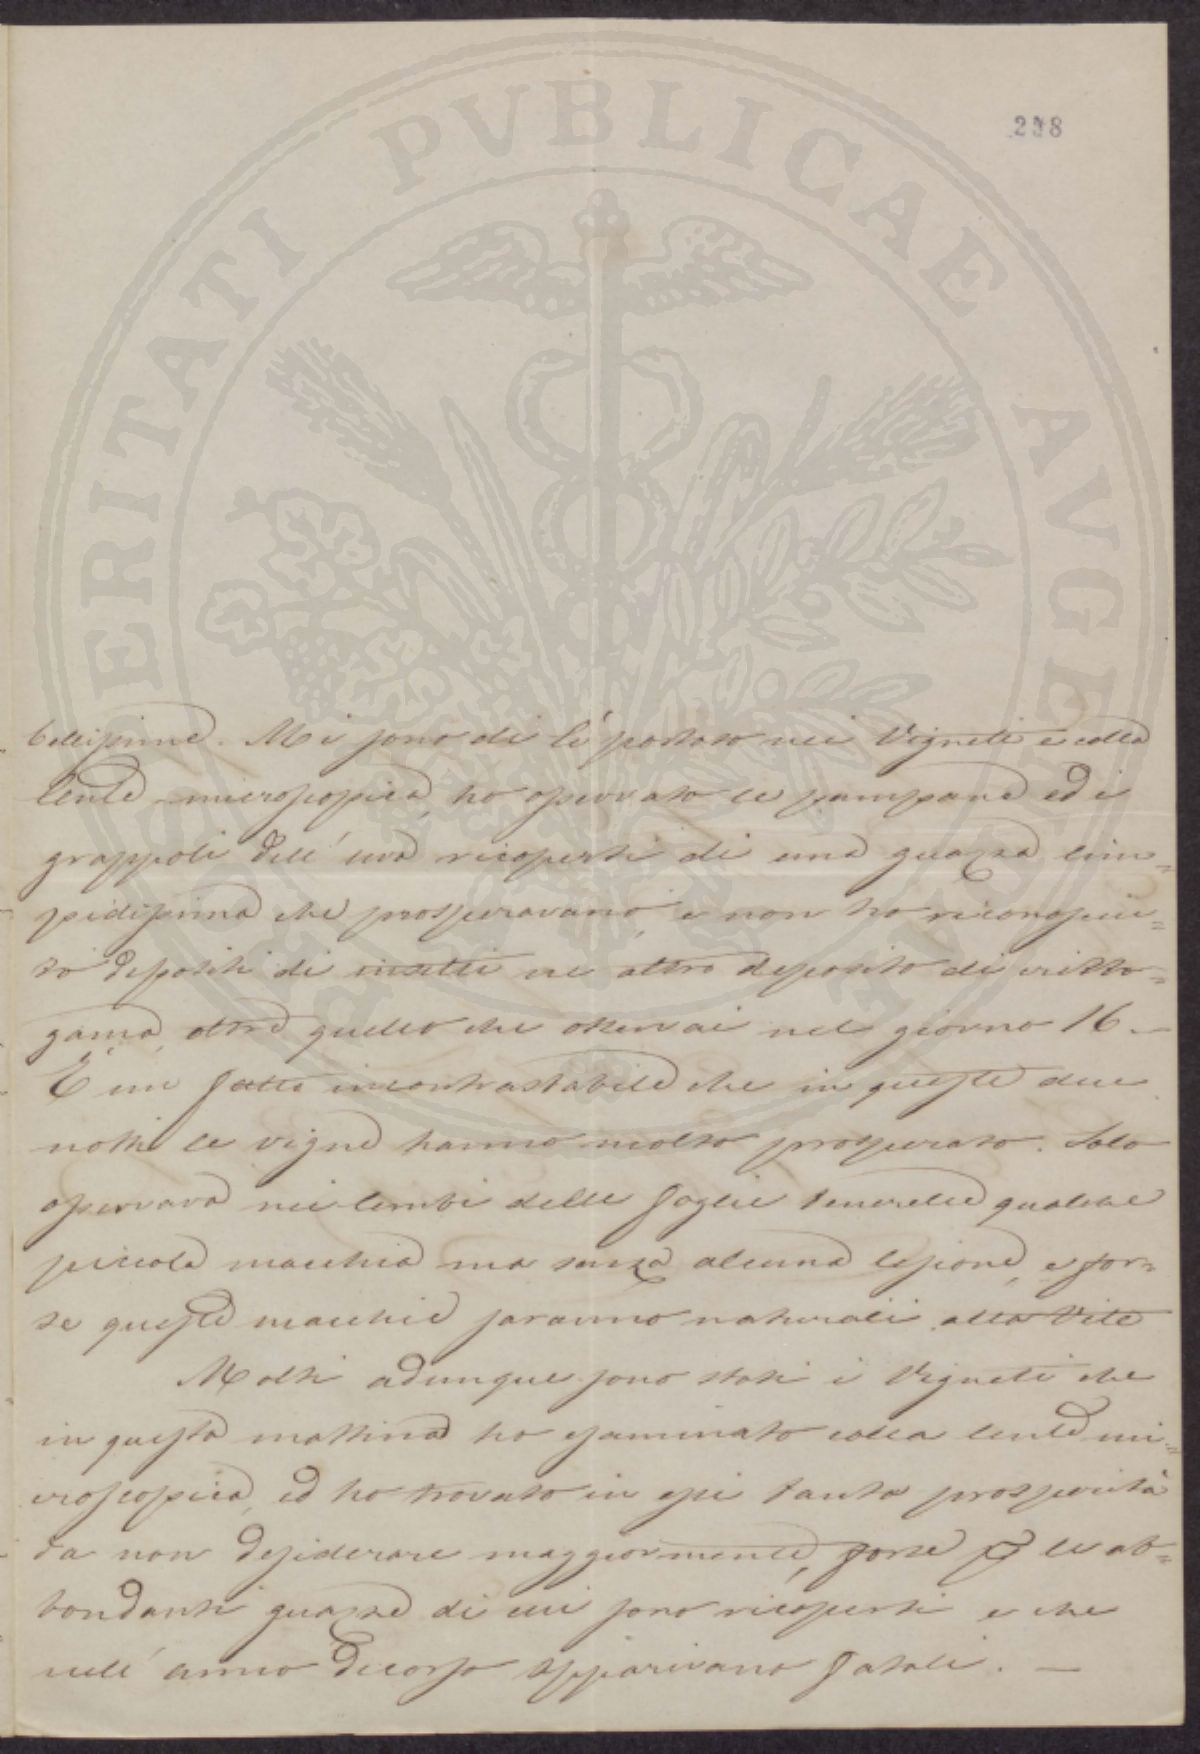 238
bellissime. Mi sono di lì portato nei Vigneti e colla
lente microscopica, ho osservato le pampane ed i
grappoli dell'uva ricoperti di una guazza lim=
pidissima che prosperavano, e non ho riconosciu=
to depositi di insetti ne altro deposito di critto=
gama, oltre quello che osservai nel giorno 16. —
È un fatto incontrastabile che in queste due
notti le vigne hanno molto prosperato. Solo
osservava nei lembi delle foglie tenerelle qualche
piccola macchia ma senza alcuna lesione, e for=
se queste macchie saranno naturali alla Vite
Molti adunque sono stati i Vigneti che
in questa mattina ho esaminato colla lente mi=
croscopica, ed ho trovato in essi tanta prosperità
da non desiderare maggiormente, forse p le ab=
bondanti guazze di cui sono ricoperti e che
nell'anno decorso apparivano fatali. —
PROSPERITATI PVBLICAE AVGENDAE